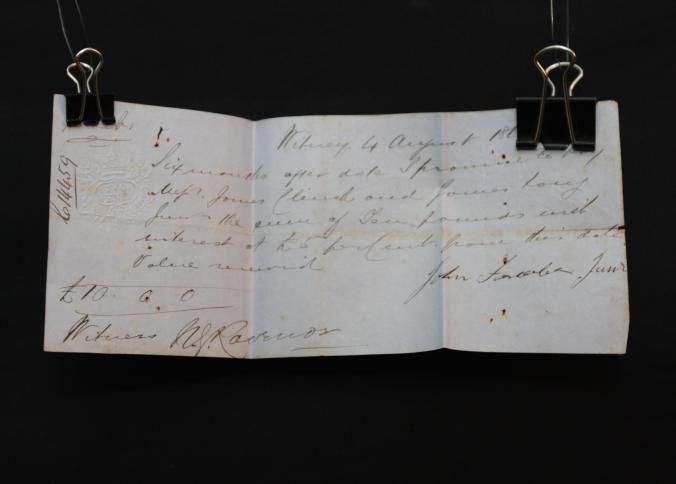 Witney 4 August 18
Six months after date I promise to pay
Messrs James Clinch and James Long
Junr the sum of Ten pounds with
interest at £5 per Cent from this date
Value received
John Junr
£10 0 0
Witness
£14459